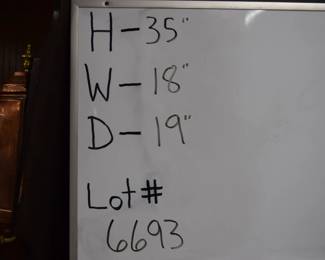 H-35"
W-18"
D-19"
Lot#
6693